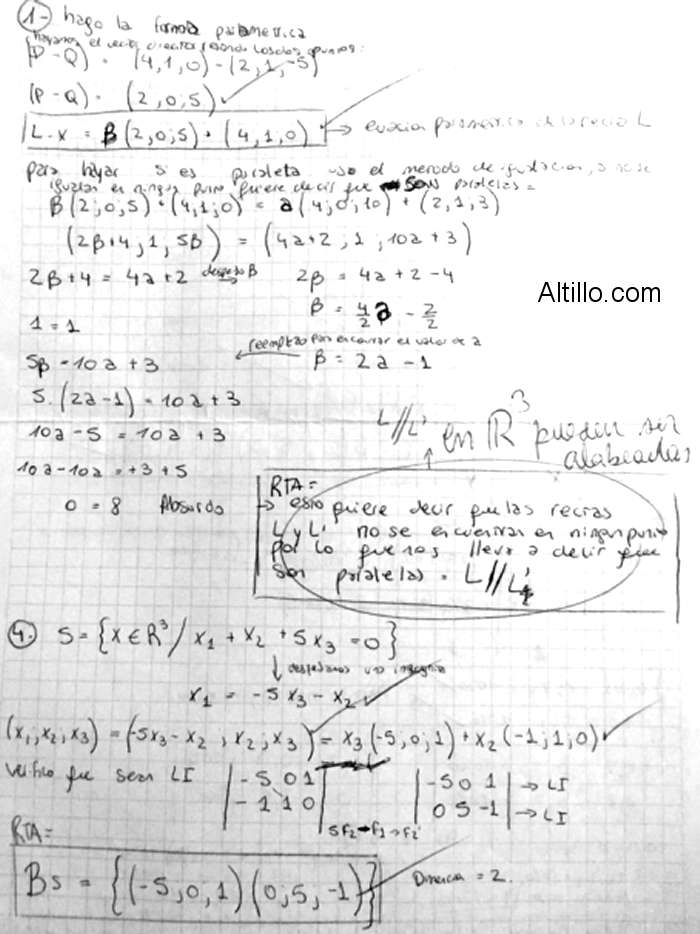 1- hago la forma parametrica
hayamos el vector director restando los dos puntos:
(P - Q) = (4,1,0) - (2,1,-5)
(P - Q) = (2,0,5)
L: X = β(2,0,5) + (4,1,0) → ecuacion parametrica de la recta L
para hayar si es paralela uso el metodo de igualacion, si no se
igualan en ningun punto quiere decir que son paralelas =
β(2,0,5) + (4,1,0) = a(4,0,10) + (2,1,3)
(2β+4, 1, 5β) = (4a+2; 1; 10a+3)
2β+4 = 4a+2 despejo β → 2β = 4a+2-4
β = 4/2 a - 2/2
Altillo.com
1 = 1
reemplazo para encontrar el valor de a
5β = 10a+3 ← β = 2a - 1
5.(2a-1) = 10a+3
10a-5 = 10a+3
L//L' en R³ pueden ser
alabeadas
10a-10a = +3+5
0 = 8 Absurdo
RTA=
→ esto quiere decir que las rectas
L y L' no se encuentran en ningun punto
por lo que nos lleva a decir que
son paralelas. L//L'
4. S = {X ∈ R³ / x₁ + x₂ + 5x₃ = 0}
↓ despejamos una incognita
x₁ = -5x₃ - x₂
(x₁, x₂, x₃) = (-5x₃ - x₂, x₂; x₃) = x₃(-5,0,1) + x₂(-1;1;0)
Verifico que sean LI | -5 0 1 | | -5 0 1 | → LI
| -1 1 0 | 5F₂-F₁→F₂ | 0 5 -1 | → LI
RTA=
Bs = {(-5;0,1)(0;5,-1)} Dimension = 2.